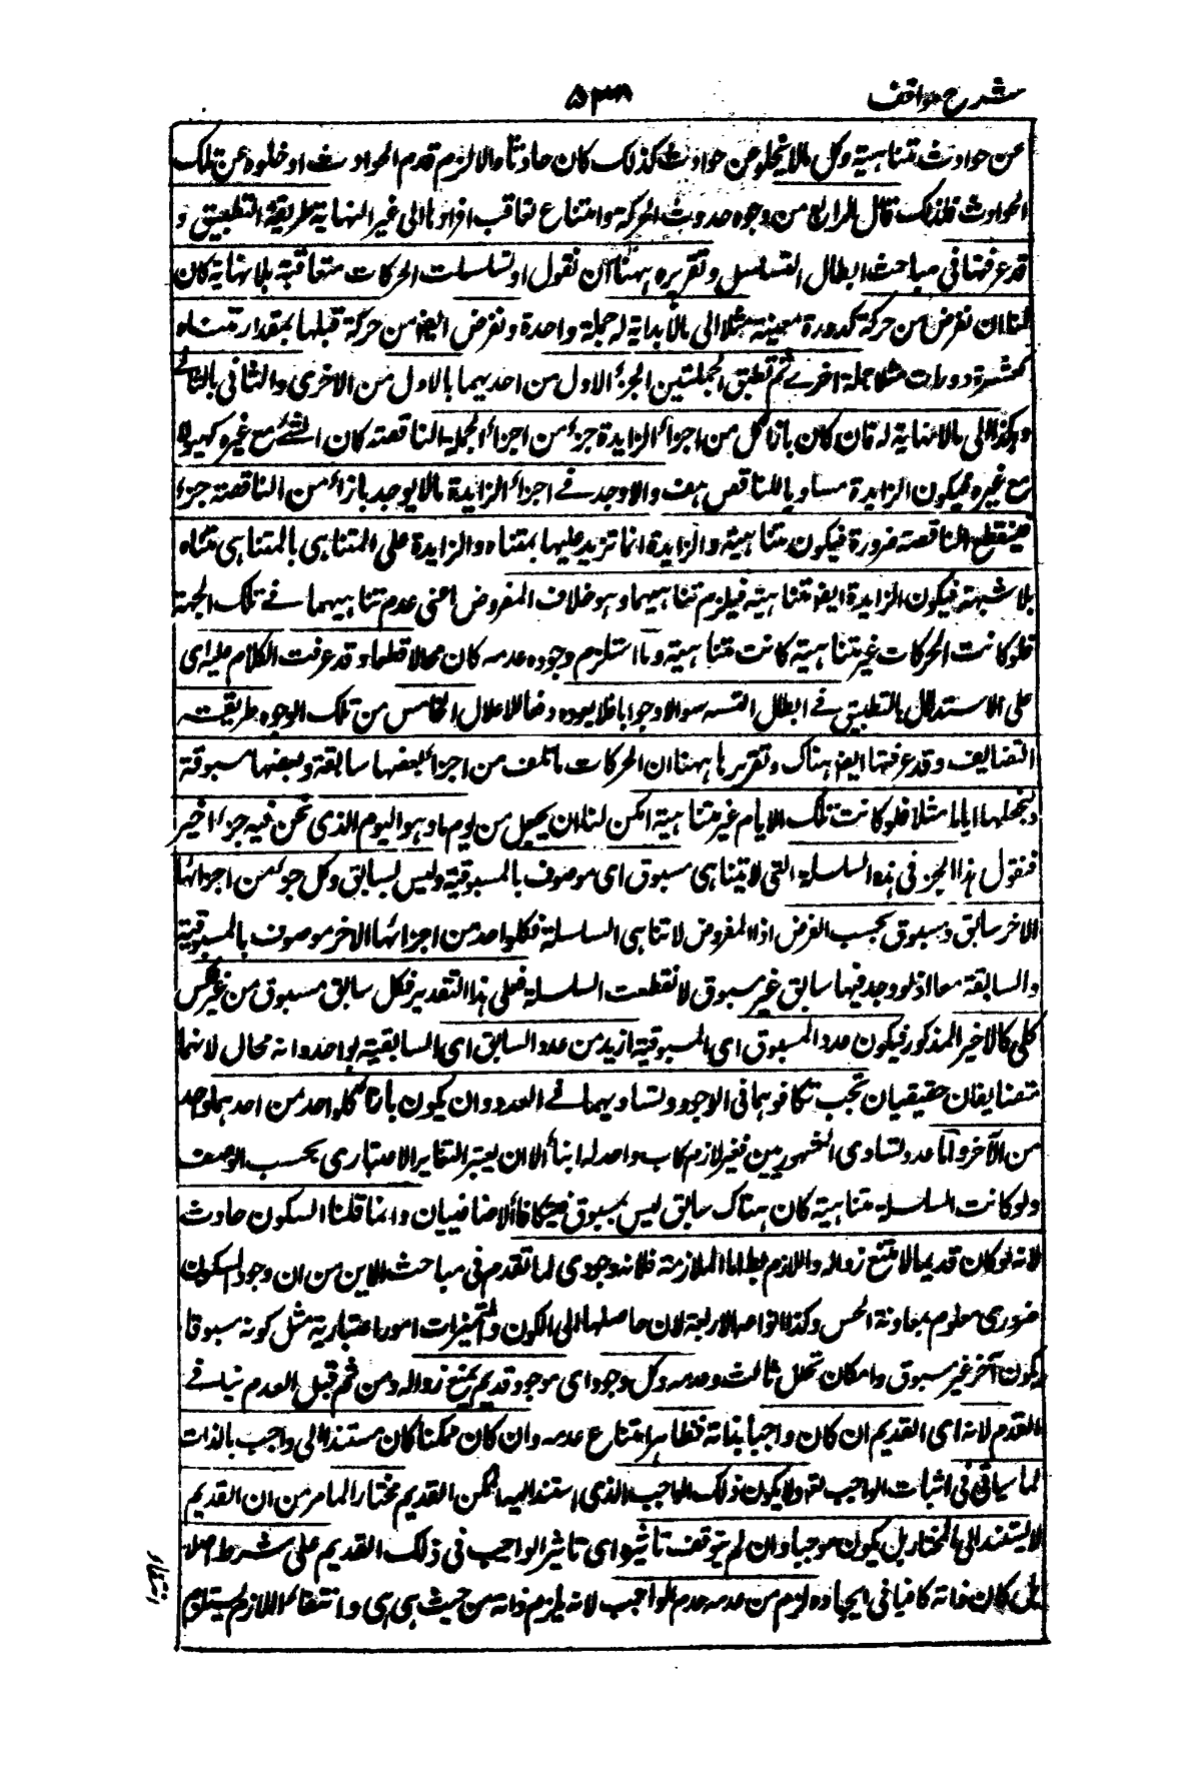 شرح مواقف
۵۳۸
عن حوادث متناهية وكل مالا يخلو عن حوادث كذلك كان حادثا والا لزم قدم الحوادث او خلوه عن تلك
الحوادث فلذلك قال الرابع من وجوه حدوث الحركة وامتناع تعاقب افرادها الى غير النهاية طريقة التطبيق و
قد عرفتها فى مباحث ابطال التسلسل وتقريره ههنا ان نقول لو تسلسلت الحركات متعاقبة بلا نهاية كان
لنا ان نفرض من حركة كدورة معينة مثلا الى مالا بداية له جملة واحدة ونفرض ايضا من حركة قبلها بمقدار متناه
كعشرة دورات مثلا جملة اخرى ثم نطبق الجملتين الجزء الاول من احديهما بالاول من الاخرى والثانى بالثانى
وهكذا الى مالا نهاية له فان كان بازاء كل من اجزاء الزايدة جزء من اجزاء الجملة الناقصة كان الشئ مع غيره كهو لا
مع غيره فيكون الزايدة مساويا للناقص هف والا وجد فى اجزاء الزايدة مالا يوجد بازائه من الناقصة جزء
فينقطع الناقصة ضرورة فيكون متناهية والزايدة انما تزيد عليها بمتناه والزايدة على المتناهى بالمتناهى متناه
بلا شبهة فيكون الزايدة ايضا متناهية فيلزم تناهيهما وهو خلاف المفروض اعنى عدم تناهيهما فى تلك الجهة
فلو كانت الحركات غير متناهية كانت متناهية وما استلزم وجوده عدمه كان محالا قطعا وقد عرفت الكلام عليه اى
على الاستدلال بالتطبيق فى ابطال التسه سوالا وجوابا فلا يعوده دفعا للاملال الخامس من تلك الوجوه طريقة
التضايف وقد عرفتها ايضا هناك وتقريرها ههنا ان الحركات ماتلف من اجزاء بعضها سابقة وبعضها مسبوقة
ونجعلها اياما مثلا فلو كانت تلك الايام غير متناهية امكن لنا ان نجعل من يومنا وهو اليوم الذى نحن فيه جزء اخير
فنقول هذا الجزء فى هذه السلسلة التى لا يتناهى مسبوق اى موصوف بالمسبوقية وليس بسابق وكل جزء من اجزائها
الاخر سابق ومسبوق بحسب الفرض اذ المفروض لا تناهى السلسلة فكل واحد من اجزائها الاخر موصوف بالمسبوقية
والسابقة معا اذ لو وجد فيها سابق غير مسبوق لانقطعت السلسلة فعلى هذا التقدير فكل سابق مسبوق من غير عكس
كلى كالاخير المذكور فيكون عدد المسبوق اى المسبوقية ازيد من عدد السابق اى السابقية بواحد وانه محال لانهما
متضايفان حقيقيان يجب تكافوهما فى الوجود وتساويهما فى العدد وان يكون بازاء كل واحد من احدهما واحد
من الآخر واما عدد تساوى المشهوريين فغير لازم كاب واحد له ابناء الا ان يعتبر التغاير الاعتبارى بحسب الوصف
ولو كانت السلسلة متناهية كان هناك سابق ليس بمسبوق فيتكافأ الاضافيان وانما قلنا السكون حادث
لانه لو كان قديما لامتنع زواله واللازم بط اما الملازمة فلانه وجودى لما تقدم فى مباحث الاين من ان وجود السكون
ضرورى معلوم بمعاونة الحس وكذا انواعه الاربعة لان حاصلها الى الكون والمميزات امور اعتبارية مثل كونه مسبوقا
بكون آخر غير مسبوق وامكان تخلل ثالث وعدمه وكل وجودى موجود قديم يمتنع زواله ومن ثم قيل العدم ينافى
القدم لانه اى القديم ان كان واجبا بذاته فظاهر امتناع عدمه وان كان ممكنا كان مستندا الى واجب بالذات
لما سيأتى فى اثبات الواجب تعه ولا يكون ذلك الواجب الذى استند اليه الممكن القديم مختارا لما مر من ان القديم
لا يستند الى المختار بل يكون موجبا وان لم يتوقف تاثيره اى تاثير الواجب فى ذلك القديم على شرط اصلا
بل كان ذاته كافيا فى ايجاده لزم من عدمه عدم الواجب لانه يلزم ذاته من حيث هى هى وانتفاء اللازم يستلزم
انتفاء